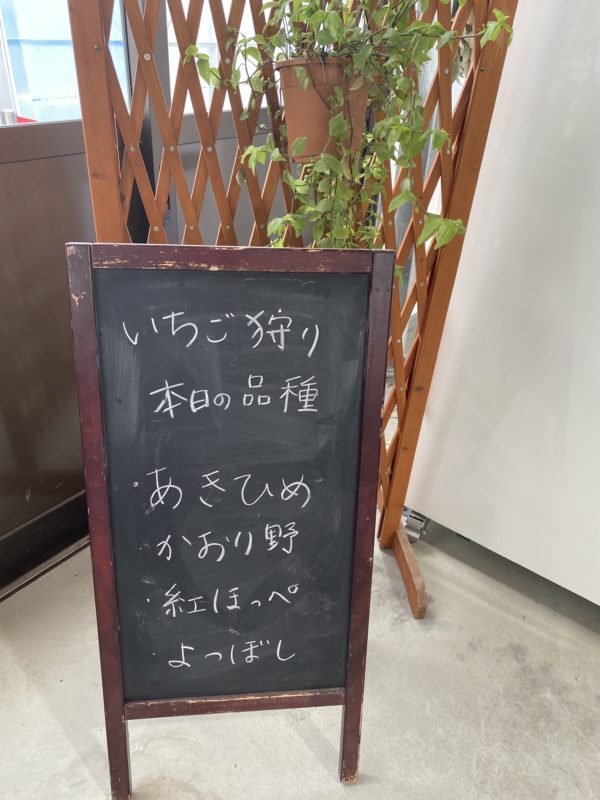 いちご狩り
本日の品種
・あきひめ
・かおり野
・紅ほっぺ
・よつぼし